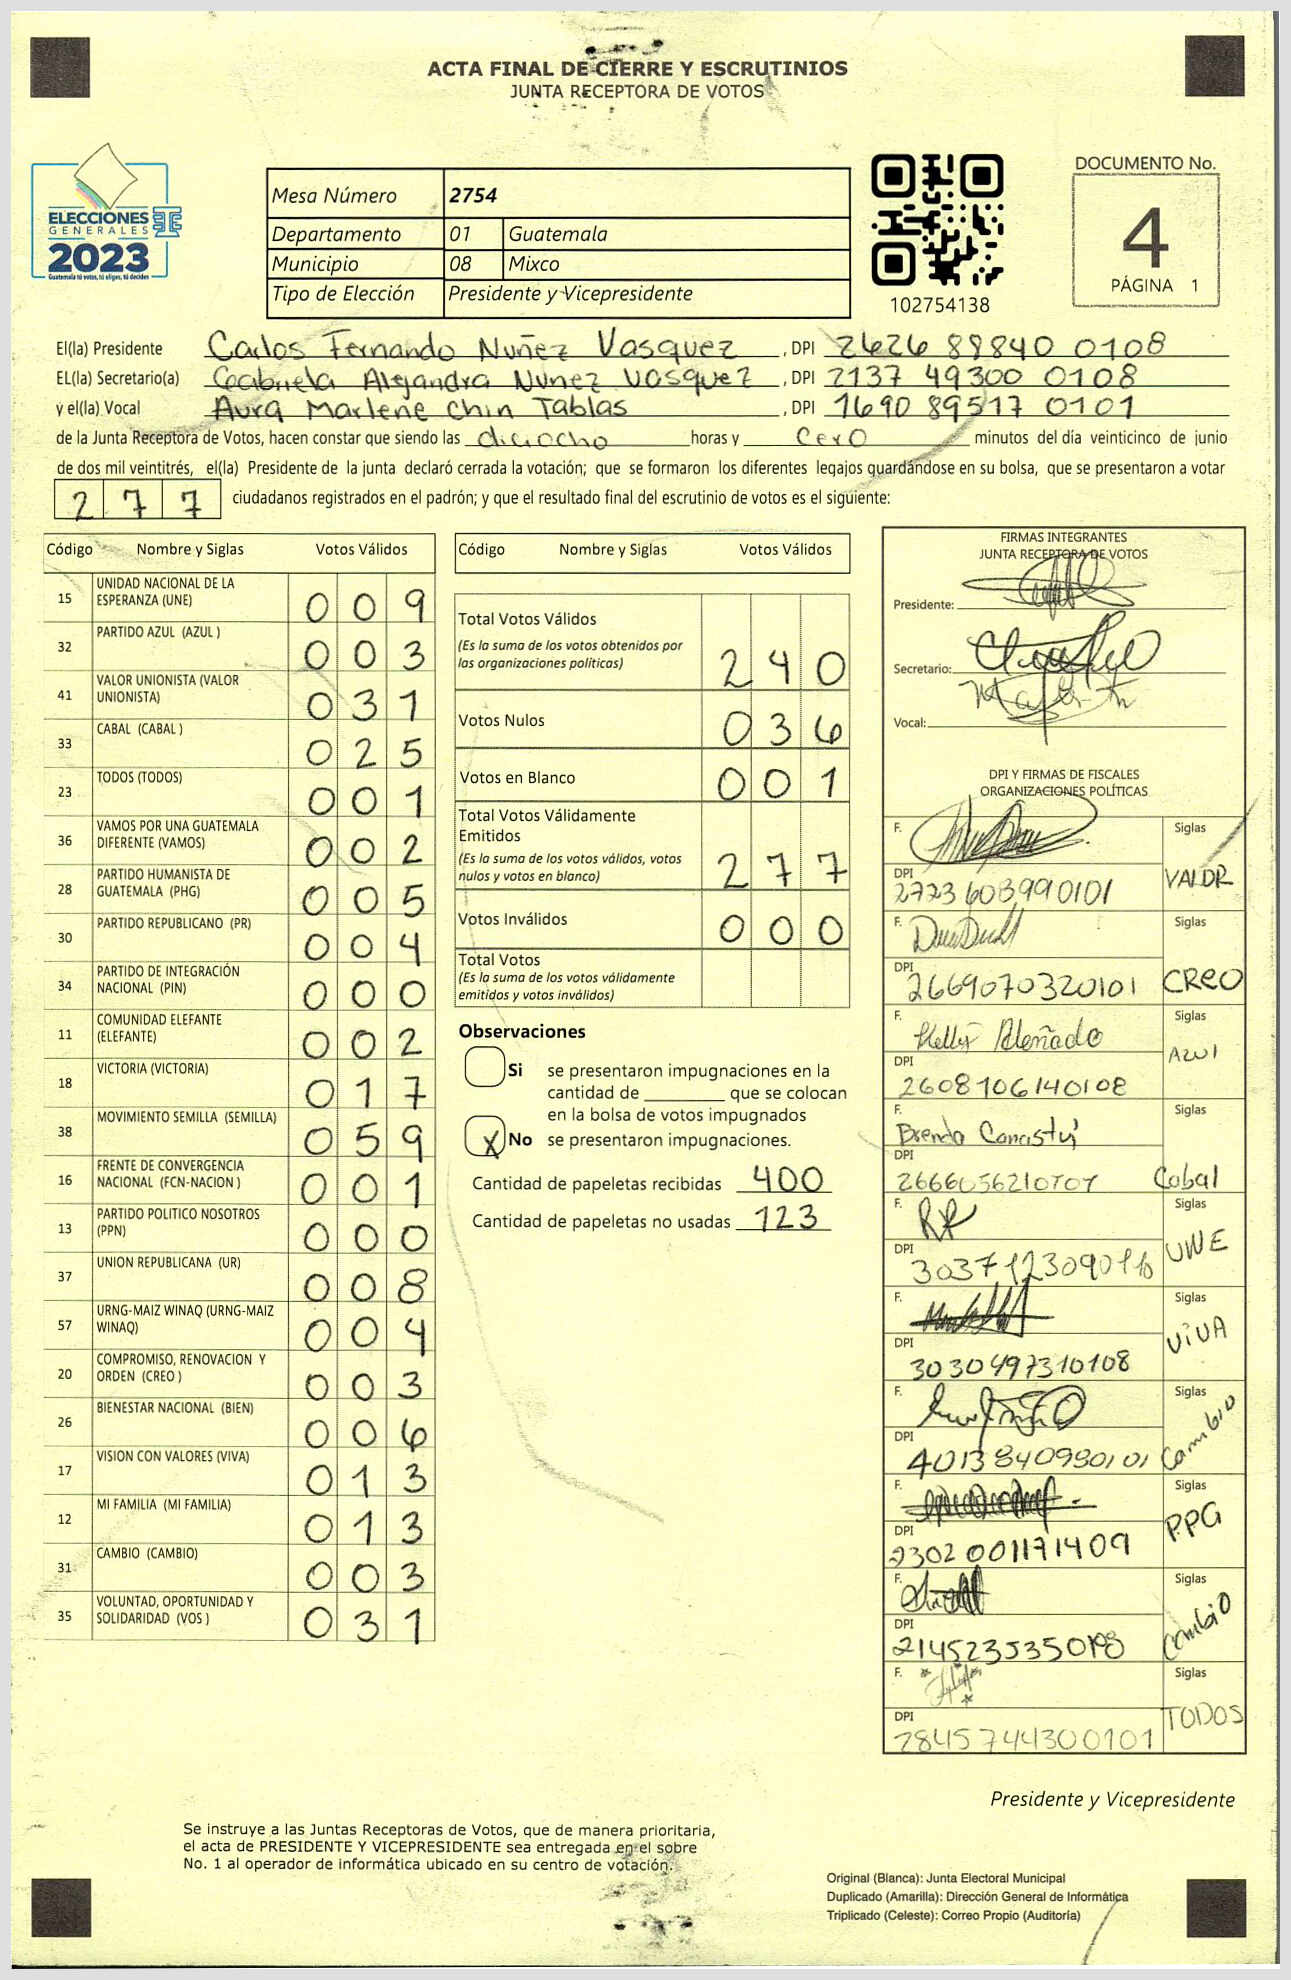 ACTA FINAL DE CIERRE Y ESCRUTINIOS
JUNTA RECEPTORA DE VOTOS
ELECCIONES
GENERALES
2023
Guatemala tú votas, tú eliges, tú decides
Mesa Número 2754
Departamento 01 Guatemala
Municipio 08 Mixco
Tipo de Elección Presidente y Vicepresidente
102754138
DOCUMENTO No.
4
PÁGINA 1
El(la) Presidente Carlos Fernando Nuñez Vasquez , DPI 2626 89840 0108
EL(la) Secretario(a) Gabriela Alejandra Nunez Vasquez , DPI 2137 49300 0108
y el(la) Vocal Aura Marlene Chin Tablas , DPI 1690 89517 0101
de la Junta Receptora de Votos, hacen constar que siendo las diciocho horas y cero minutos del día veinticinco de junio
de dos mil veintitrés, el(la) Presidente de la junta declaró cerrada la votación; que se formaron los diferentes legajos guardándose en su bolsa, que se presentaron a votar
277 ciudadanos registrados en el padrón; y que el resultado final del escrutinio de votos es el siguiente:
Código Nombre y Siglas Votos Válidos
15 UNIDAD NACIONAL DE LA ESPERANZA (UNE) 009
32 PARTIDO AZUL (AZUL ) 003
41 VALOR UNIONISTA (VALOR UNIONISTA) 031
33 CABAL (CABAL ) 025
23 TODOS (TODOS) 001
36 VAMOS POR UNA GUATEMALA DIFERENTE (VAMOS) 002
28 PARTIDO HUMANISTA DE GUATEMALA (PHG) 005
30 PARTIDO REPUBLICANO (PR) 004
34 PARTIDO DE INTEGRACIÓN NACIONAL (PIN) 000
11 COMUNIDAD ELEFANTE (ELEFANTE) 002
18 VICTORIA (VICTORIA) 017
38 MOVIMIENTO SEMILLA (SEMILLA) 059
16 FRENTE DE CONVERGENCIA NACIONAL (FCN-NACION ) 001
13 PARTIDO POLITICO NOSOTROS (PPN) 000
37 UNION REPUBLICANA (UR) 008
57 URNG-MAIZ WINAQ (URNG-MAIZ WINAQ) 004
20 COMPROMISO, RENOVACION Y ORDEN (CREO ) 003
26 BIENESTAR NACIONAL (BIEN) 006
17 VISION CON VALORES (VIVA) 013
12 MI FAMILIA (MI FAMILIA) 013
31 CAMBIO (CAMBIO) 003
35 VOLUNTAD, OPORTUNIDAD Y SOLIDARIDAD (VOS ) 031
Código Nombre y Siglas Votos Válidos
Total Votos Válidos 240
(Es la suma de los votos obtenidos por
las organizaciones políticas)
Votos Nulos 036
Votos en Blanco 001
Total Votos Válidamente
Emitidos 277
(Es la suma de los votos válidos, votos
nulos y votos en blanco)
Votos Inválidos 000
Total Votos
(Es la suma de los votos válidamente
emitidos y votos inválidos)
Observaciones
Si se presentaron impugnaciones en la
cantidad de ________ que se colocan
en la bolsa de votos impugnados
X No se presentaron impugnaciones.
Cantidad de papeletas recibidas 400
Cantidad de papeletas no usadas 123
FIRMAS INTEGRANTES
JUNTA RECEPTORA DE VOTOS
Presidente:
Secretario:
Vocal:
DPI Y FIRMAS DE FISCALES
ORGANIZACIONES POLÍTICAS
F. Siglas
DPI 2723608990101 VALOR
F. Siglas
DPI 2669070320101 CREO
F. Siglas
DPI 2608106140108 Azul
F. Brenda Siglas
DPI Cabal
F. Siglas
DPI UNE
F. Siglas
DPI 3030497310108 VIVA
F. Siglas
DPI 4013840980101 Cambio
F. Siglas
DPI 2302001171409 PPG
F. Siglas
DPI Cambio
F. Siglas
DPI 2845744300101 TODOS
Presidente y Vicepresidente
Se instruye a las Juntas Receptoras de Votos, que de manera prioritaria,
el acta de PRESIDENTE Y VICEPRESIDENTE sea entregada en el sobre
No. 1 al operador de informática ubicado en su centro de votación.
Original (Blanca): Junta Electoral Municipal
Duplicado (Amarilla): Dirección General de Informática
Triplicado (Celeste): Correo Propio (Auditoría)